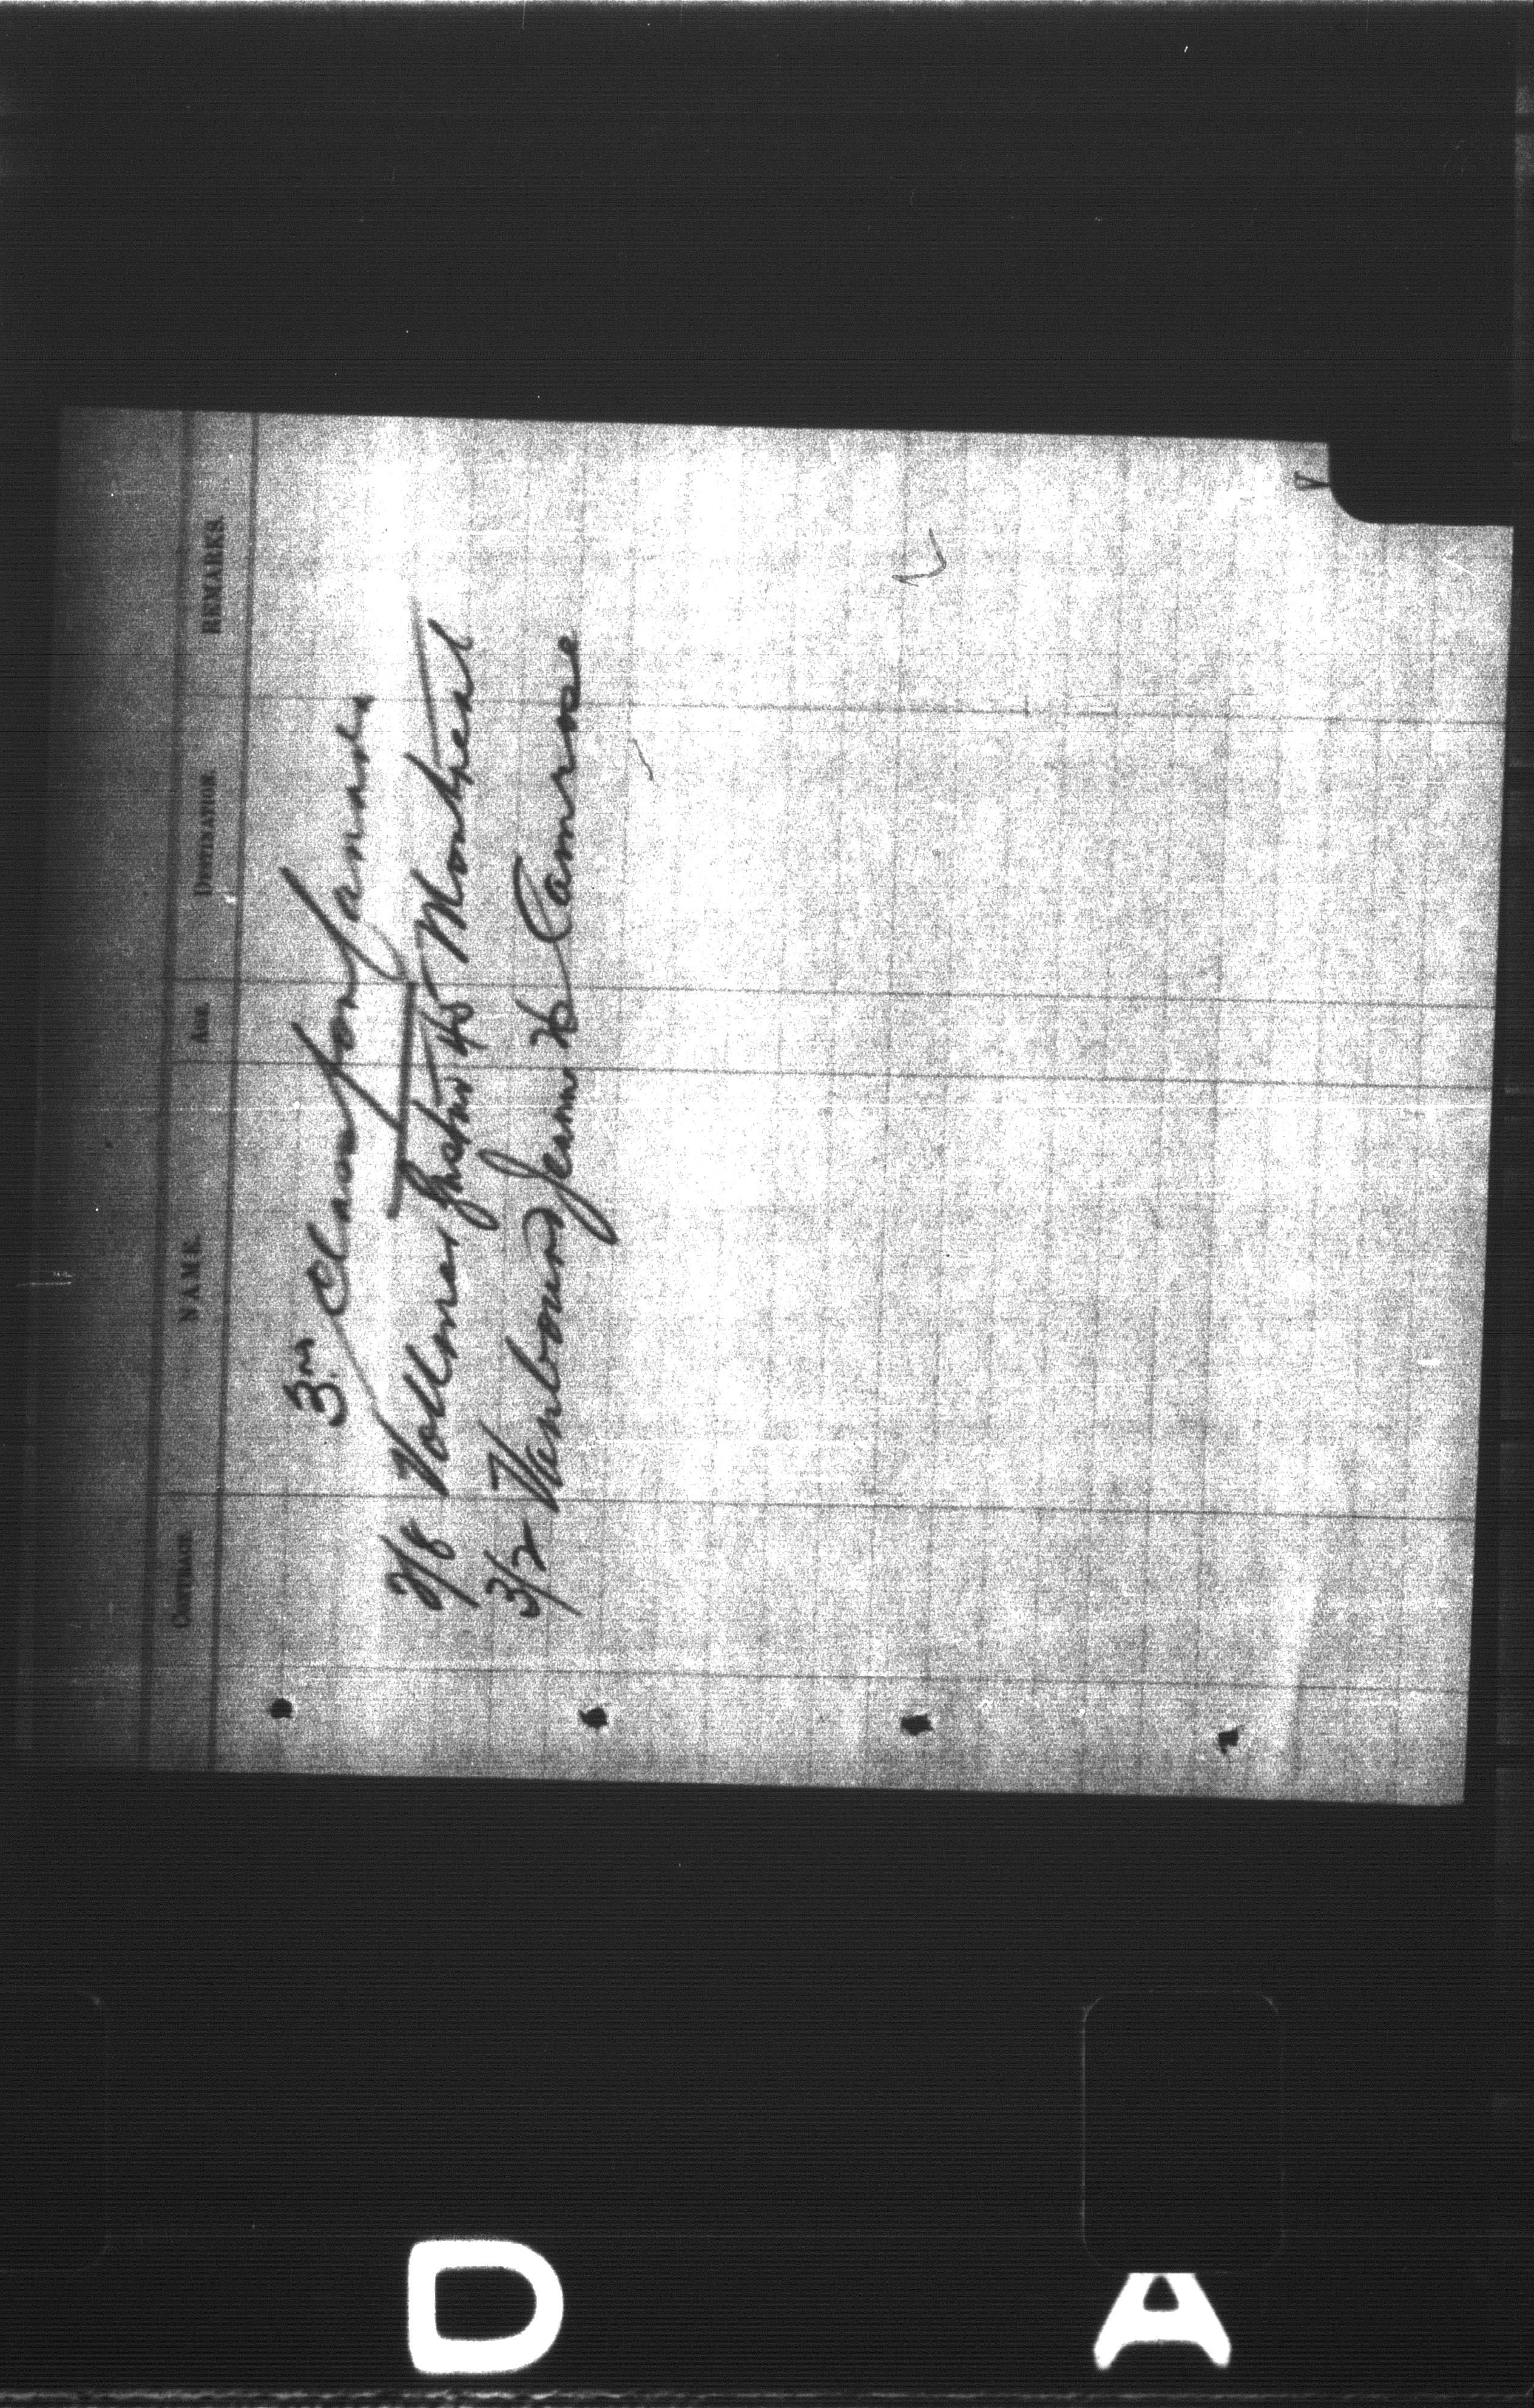 CONTRACT NAME. AGE. DESTINATION. REMARKS.
3rd Class for Canada
Vollmer 45 Montreal
3/2 Jeanne 26 Camrose
D A